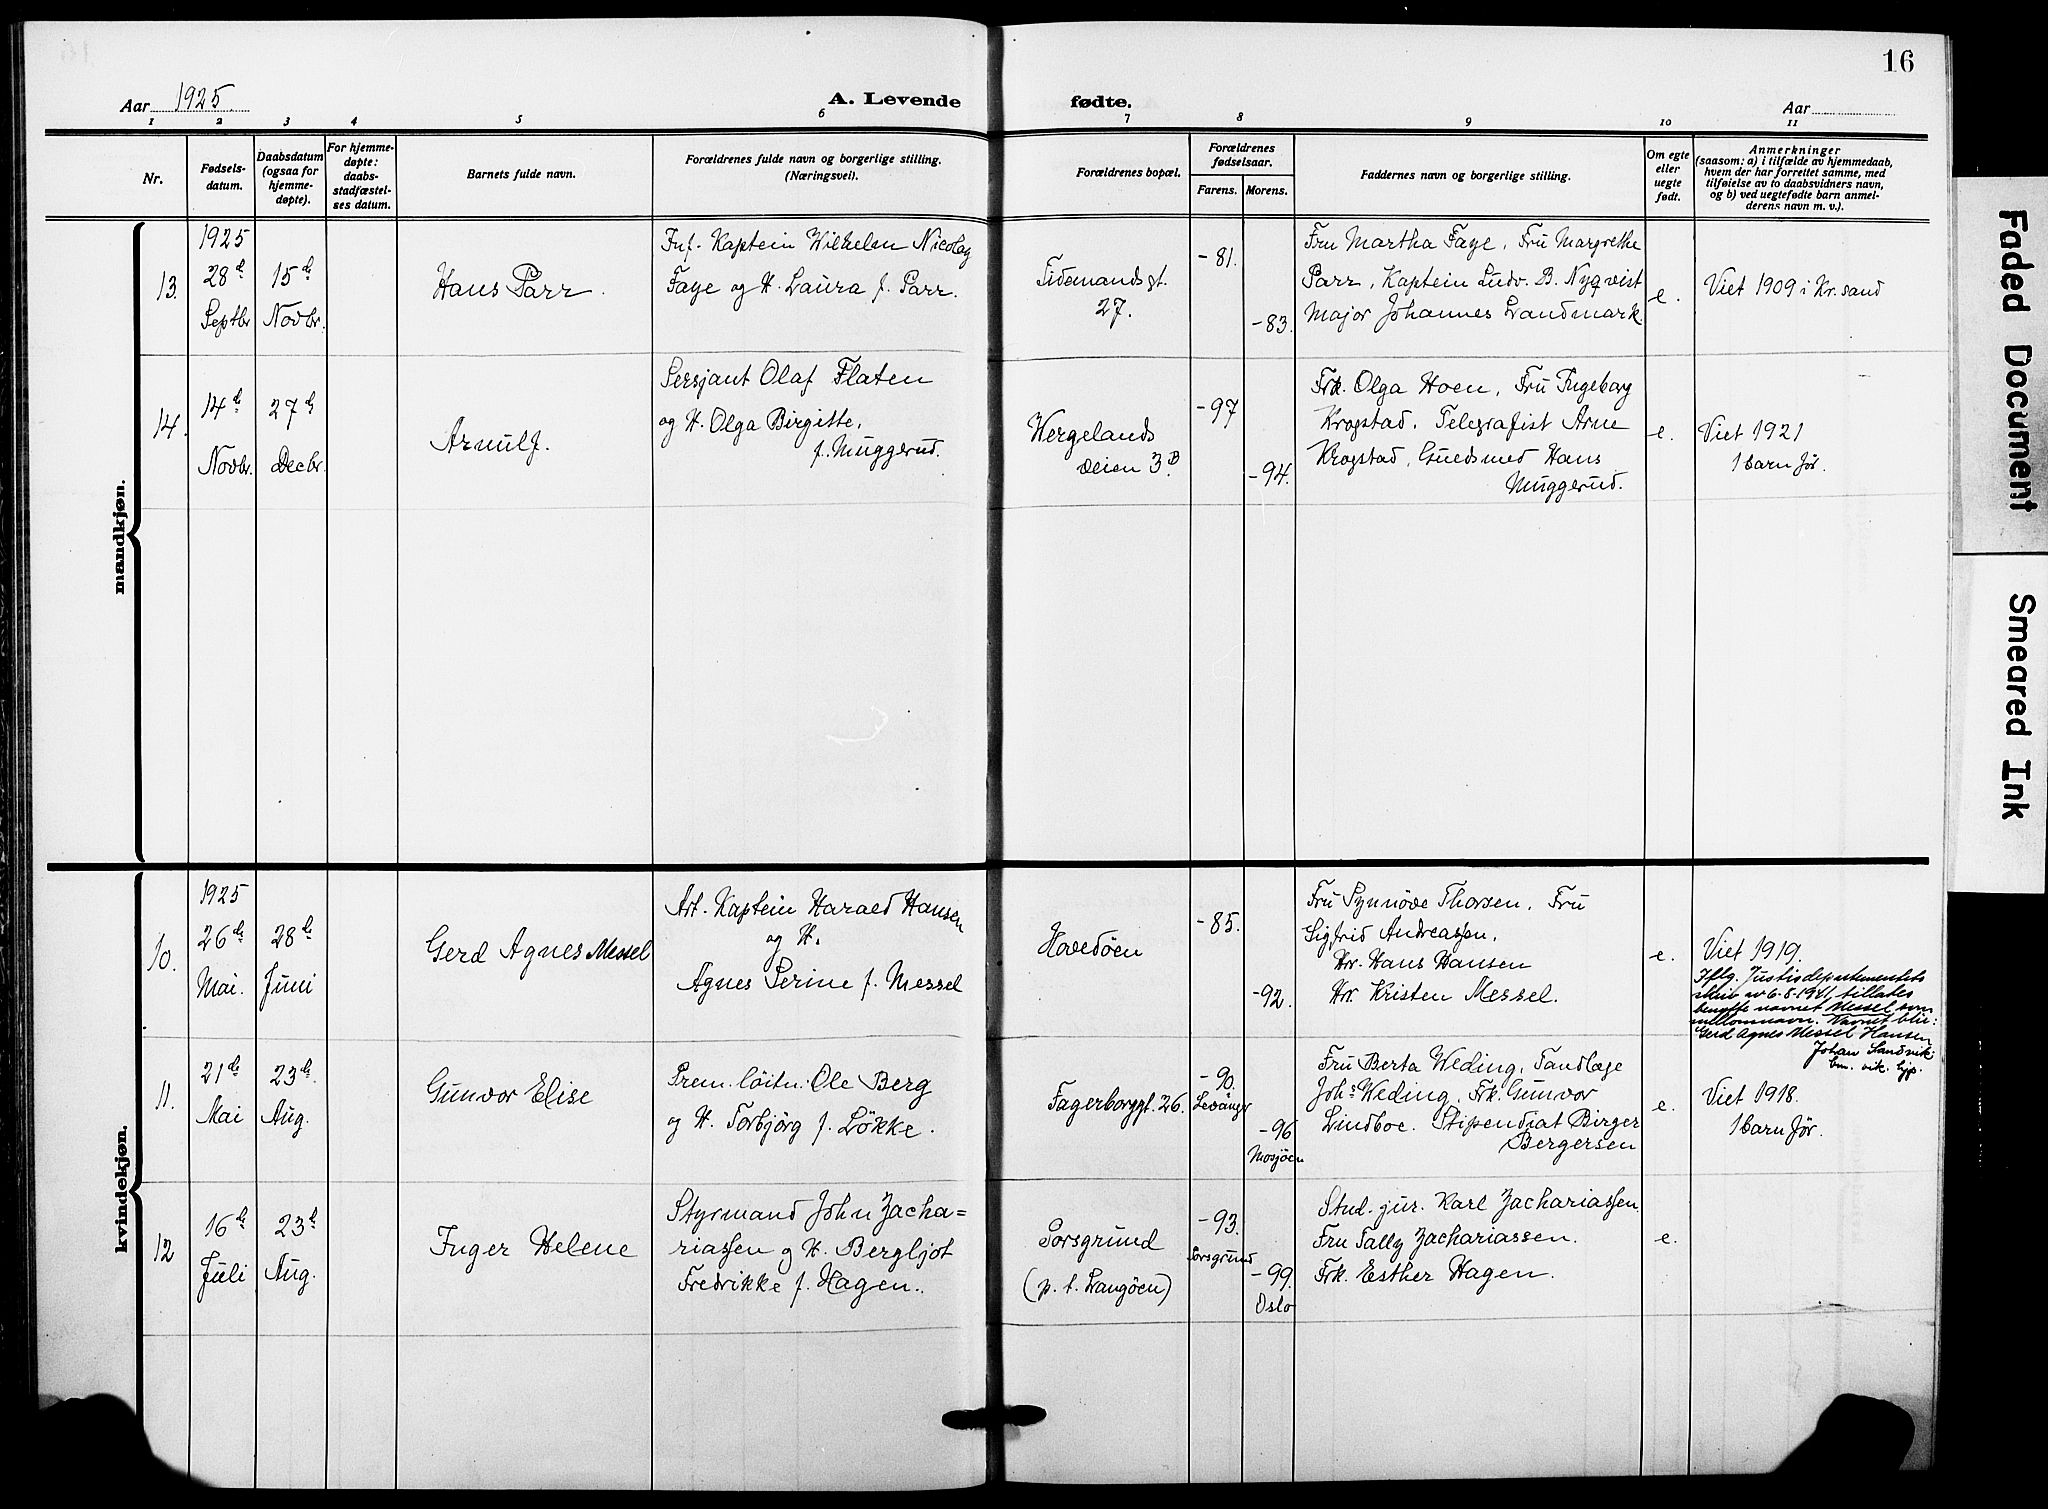 16
Aar 1925
A. Levende
fødte.
Aar
1 2 3 4 5 6 7 8 9 10 11
Nr.
Fødsels-
datum.
Daabsdatum
(ogsaa for
hjemme-
døpte).
For hjemme-
døpte:
daabs-
stadfæstel-
ses datum.
Barnets fulde navn.
Forældrenes fulde navn og borgerlige stilling.
(Næringsvei).
Forældrenes bopæl.
Forældrenes
fødselsaar.
Farens. Morens.
Faddernes navn og borgerlige stilling.
Om egte
eller
uegte
født.
Anmerkninger
(saasom: a) i tilfælde av hjemmedaab,
hvem der har forrettet samme, med
tilføielse av to daabsvidners navn,
og b) ved uegtefødte barn anmel-
derens navn m. v.).
mandkjøn.
13.
1925
28de
Septbr.
15de
Novbr.
Hans Parr.
Inf. Kaptein Wilhelm Nicolay
Faye og H. Laura f. Parr.
Tidemandsgt.
27.
-81.
-83.
Fru Martha Faye, Fru Margrethe
Parr, Kaptein Ludv. B. Nyqvist
Major Johannes Landmark.
e.
Viet 1909 i Kr.sand
14.
14de
Novbr.
27de
Decbr.
Arnulf.
Sersjant Olaf Flaten
og H. Olga Birgitte,
f. Muggerud.
Wergelands
veien 3B.
-97
-94.
Frk. Olga Hoen, Fru Ingeborg
Krogstad, Telegrafist Arne
Krogstad, Guldsmed Hans
Muggerud.
e.
Viet 1921
1 barn før.
kvindekjøn.
10.
1925
26de
Mai.
28de
Juni
Gerd Agnes Messel
Art. Kaptein Harald Hansen
og H.
Agnes Serine f. Messel
Hovedöen
-85.
-92.
Fru Synnöve Thorsen, Fru
Sigfrid Andreassen,
Hr. Hans Hansen
Hr. Kristen Messel.
e.
Viet 1919.
Iflg. Justisdepartementets
skriv av 6-8-1941, tillates
benytte navnet Messel som
mellomnavn. Navnet blir:
Gerd Agnes Messel Hansen
Johan Sandvik.
11.
21de
Mai
23de
Aug.
Gunvor Elise
Prem. löitn. Ole Berg
og H. Torbjörg f. Lökke.
Fagerborggt. 26.
-90.
Levanger
-96
Mosjöen
Fru Berta Weding, Tandlæge
Johs Weding, Frk. Gunvor
Lindboe. Stipendiat Birger
Bergersen
e.
Viet 1918.
1 barn før.
12
16de
Juli
23de
Aug.
Inger Helene
Styrmand John Zacha=
riassen og H. Bergljot
Fredrikke f. Hagen.
Porsgrund
(p. t. Langöen)
-93.
Porsgrund
-99.
Oslo
Stud. jur. Karl Zachariassen.
Fru Tally Zachariassen.
Frk. Esther Hagen.
e.
Faded Document
Smeared Ink